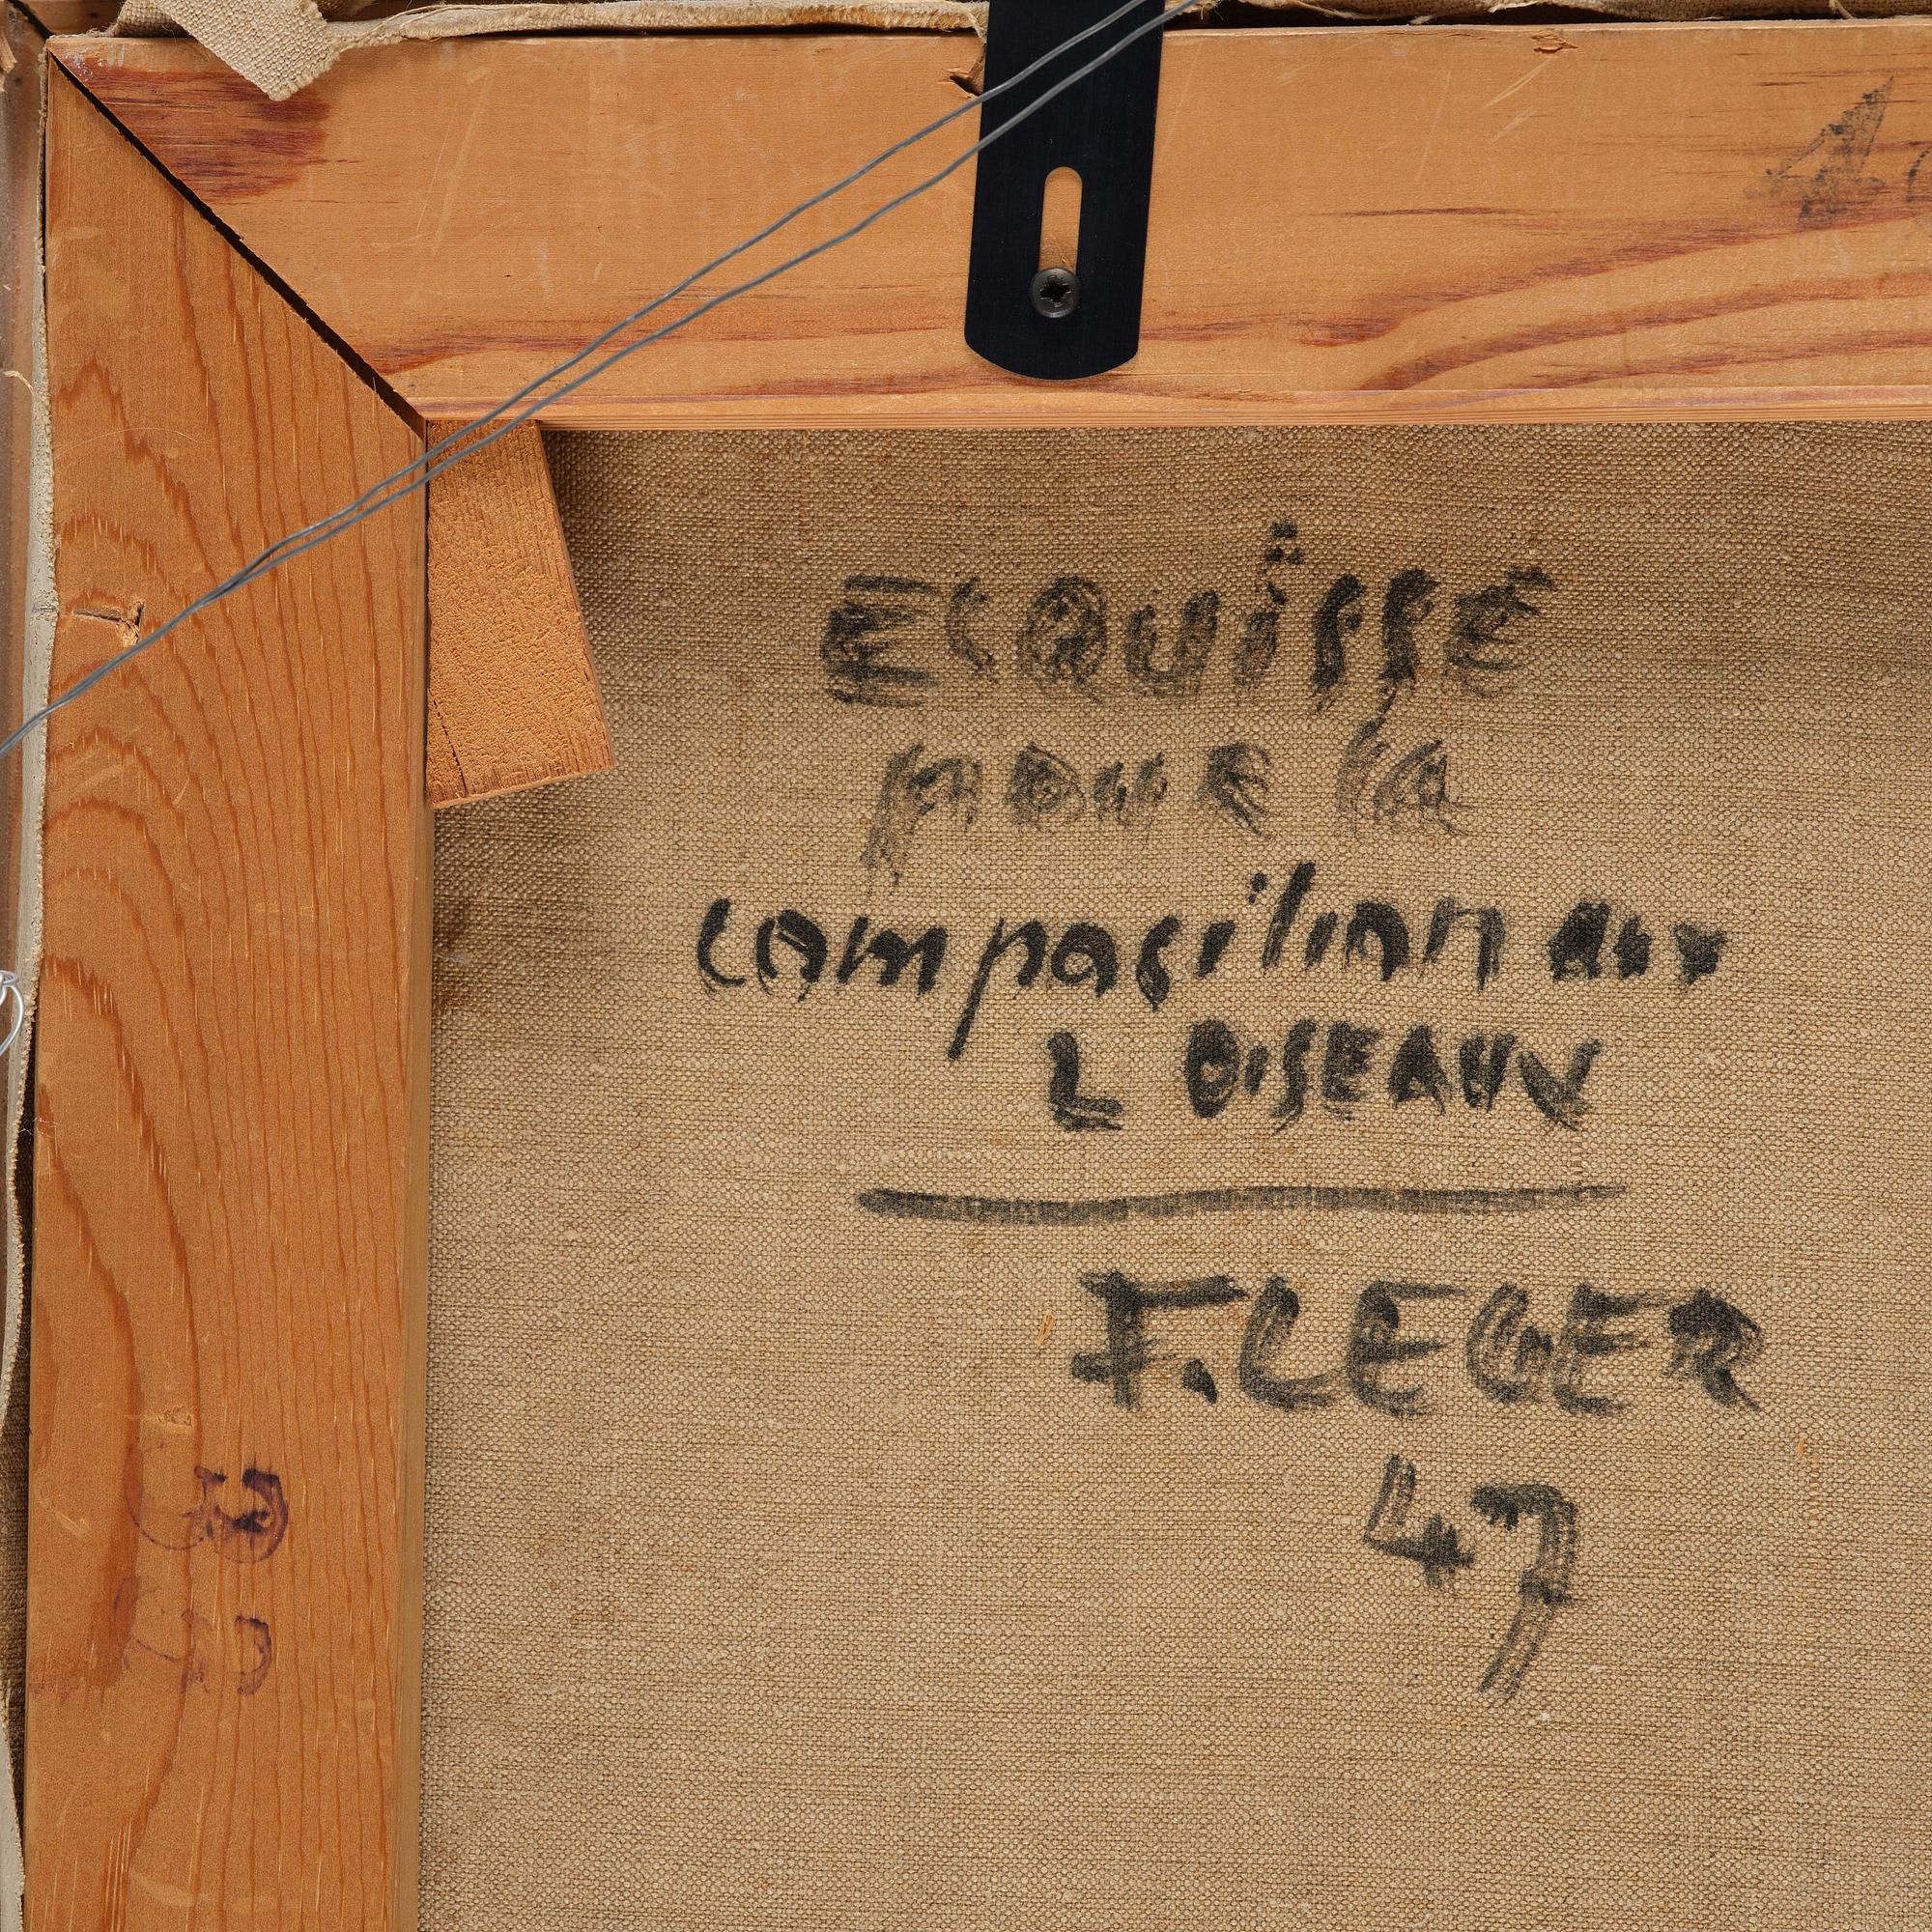 ECQUÏSSÉ
pour la
composition aux
2 OISEAUX
F. LEGER
47